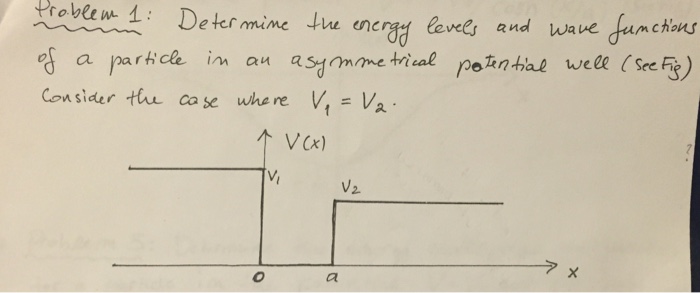 Problem 1: Determine the energy levels and wave functions
of a particle in an asymmetrical potential well (see Fig)
Consider the case where V₁ = V₂.
V(x)
V₁
V₂
0 a x